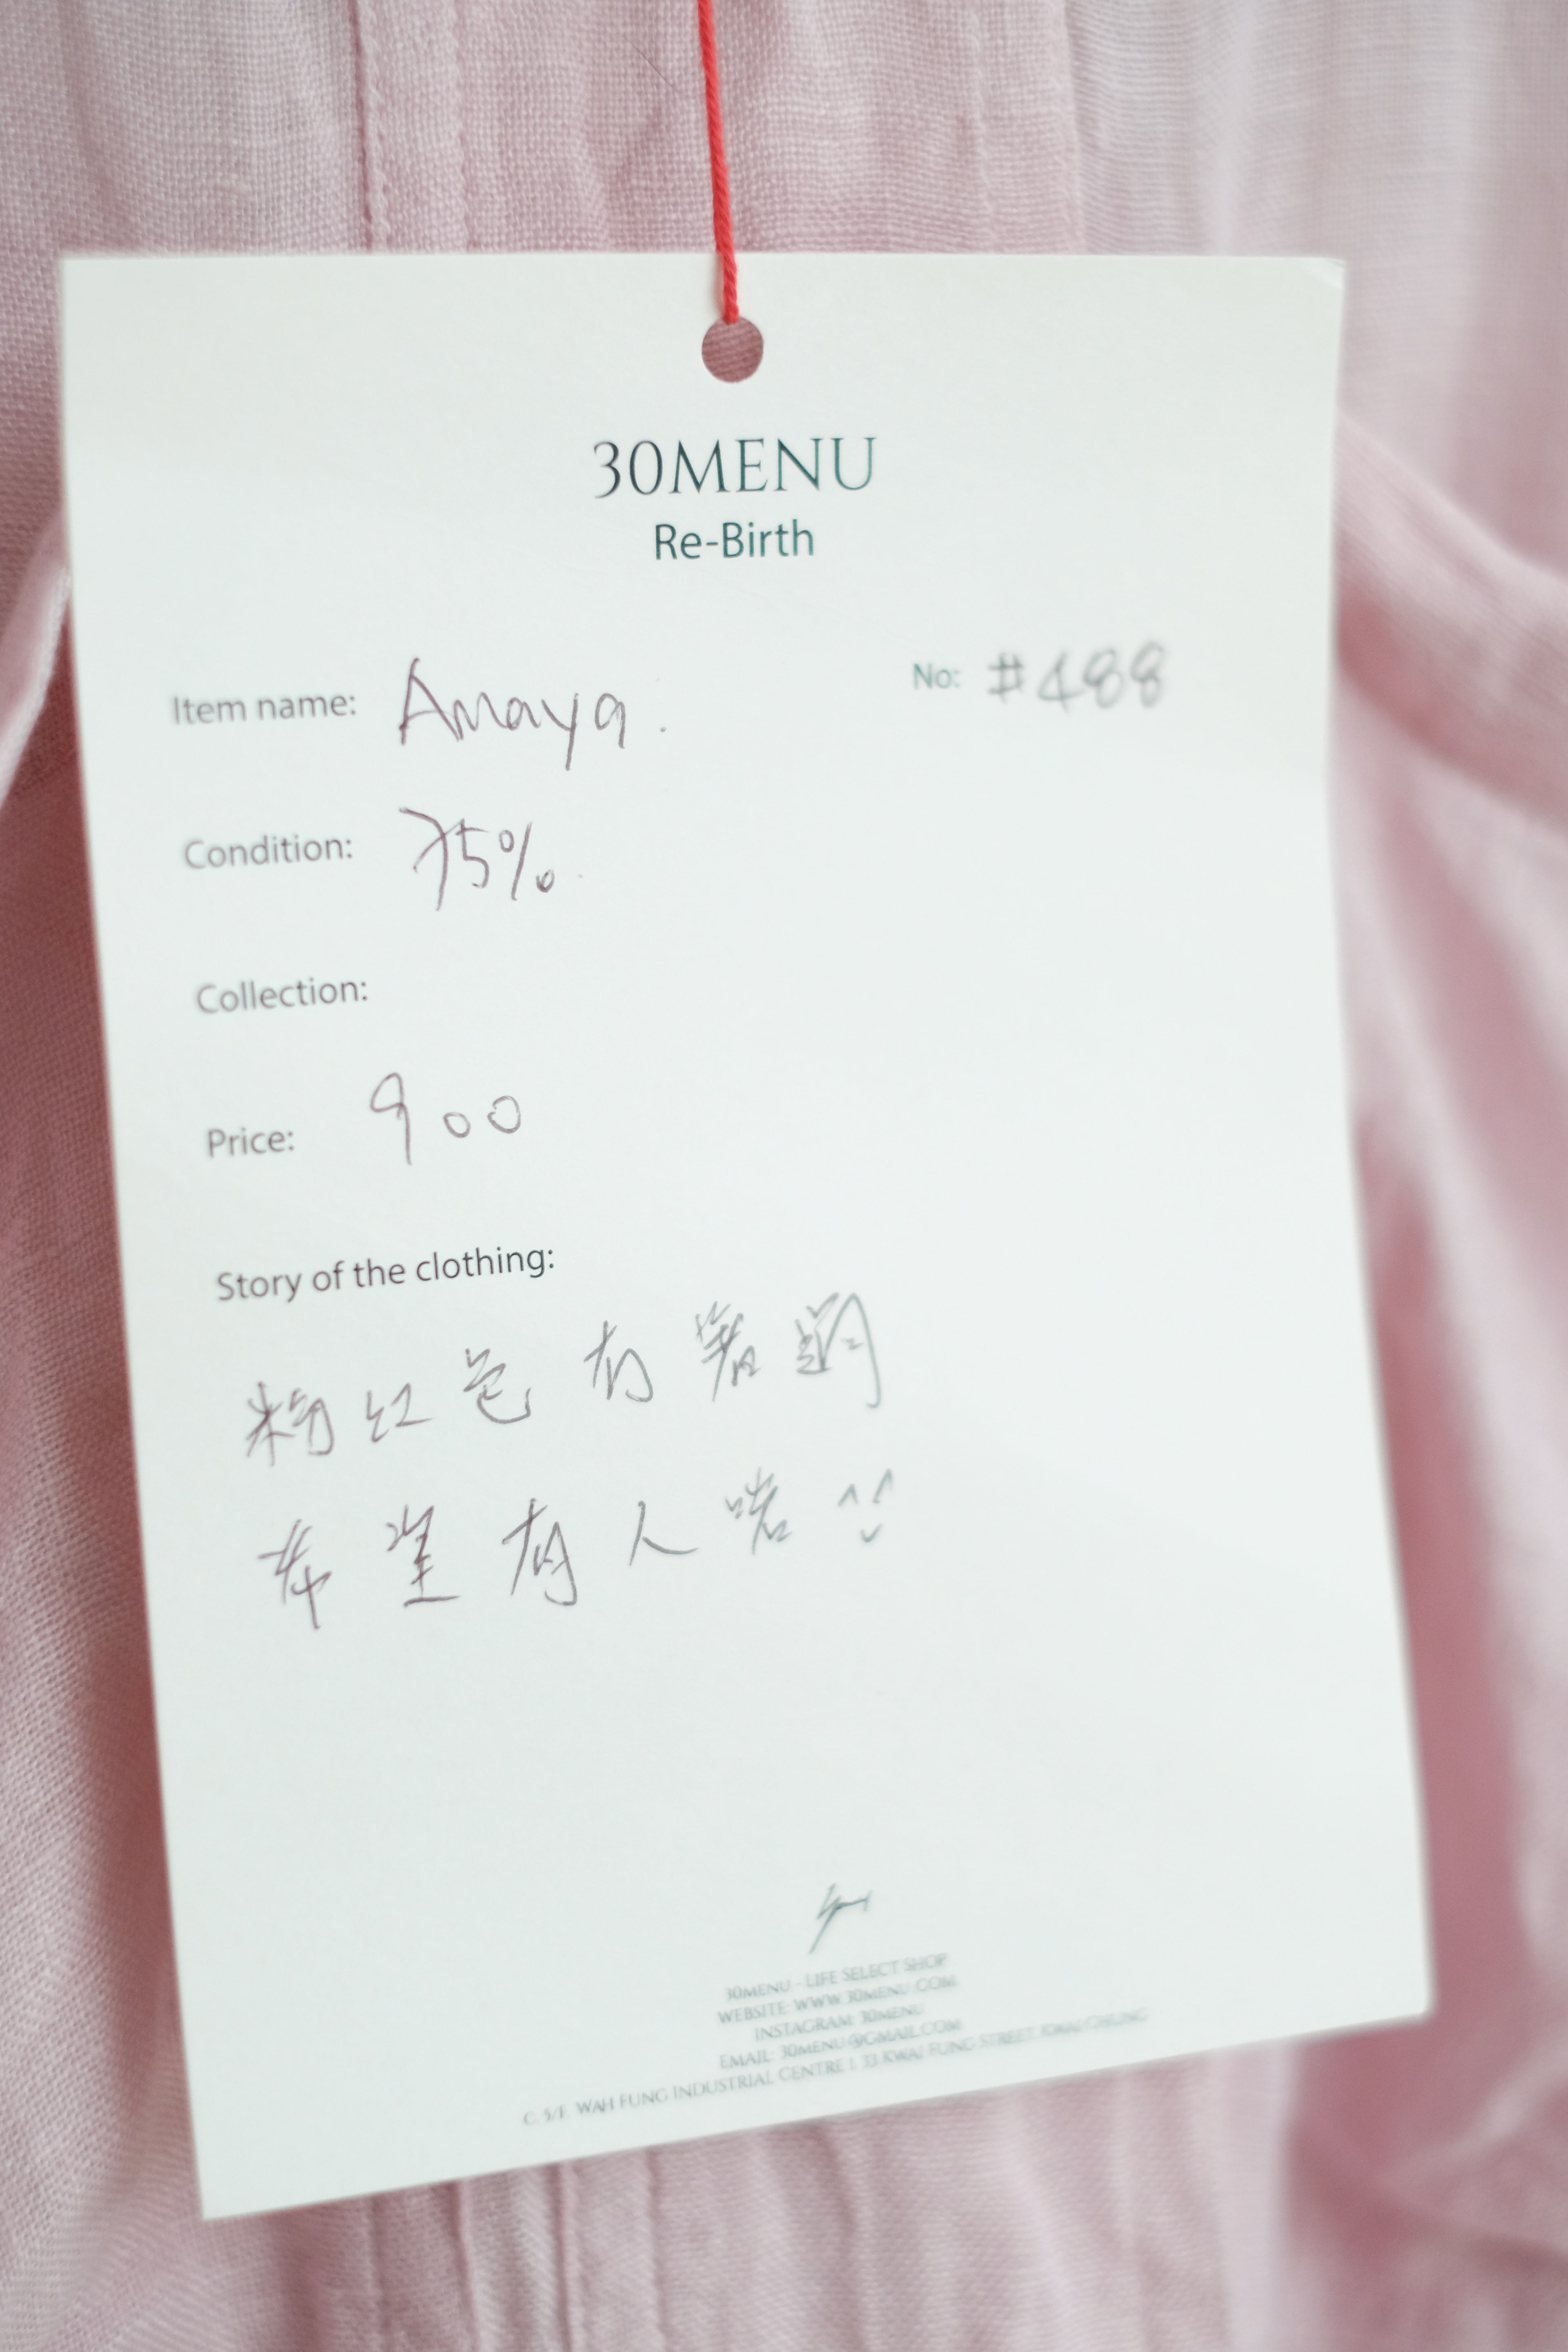 30MENU
Re-Birth
Item name: Amaya.
No: #488
Condition: 75%
Collection:
Price: 900
Story of the clothing:
粉紅色有
希望有人
30MENU - LIFE SELECT SHOP
WEBSITE: WWW.30MENU.COM
INSTAGRAM: 30MENU
EMAIL: 30MENU@GMAIL.COM
C, 5/F, WAH FUNG INDUSTRIAL CENTRE I, 33 KWAI FUNG STREET, KWAI CHUNG